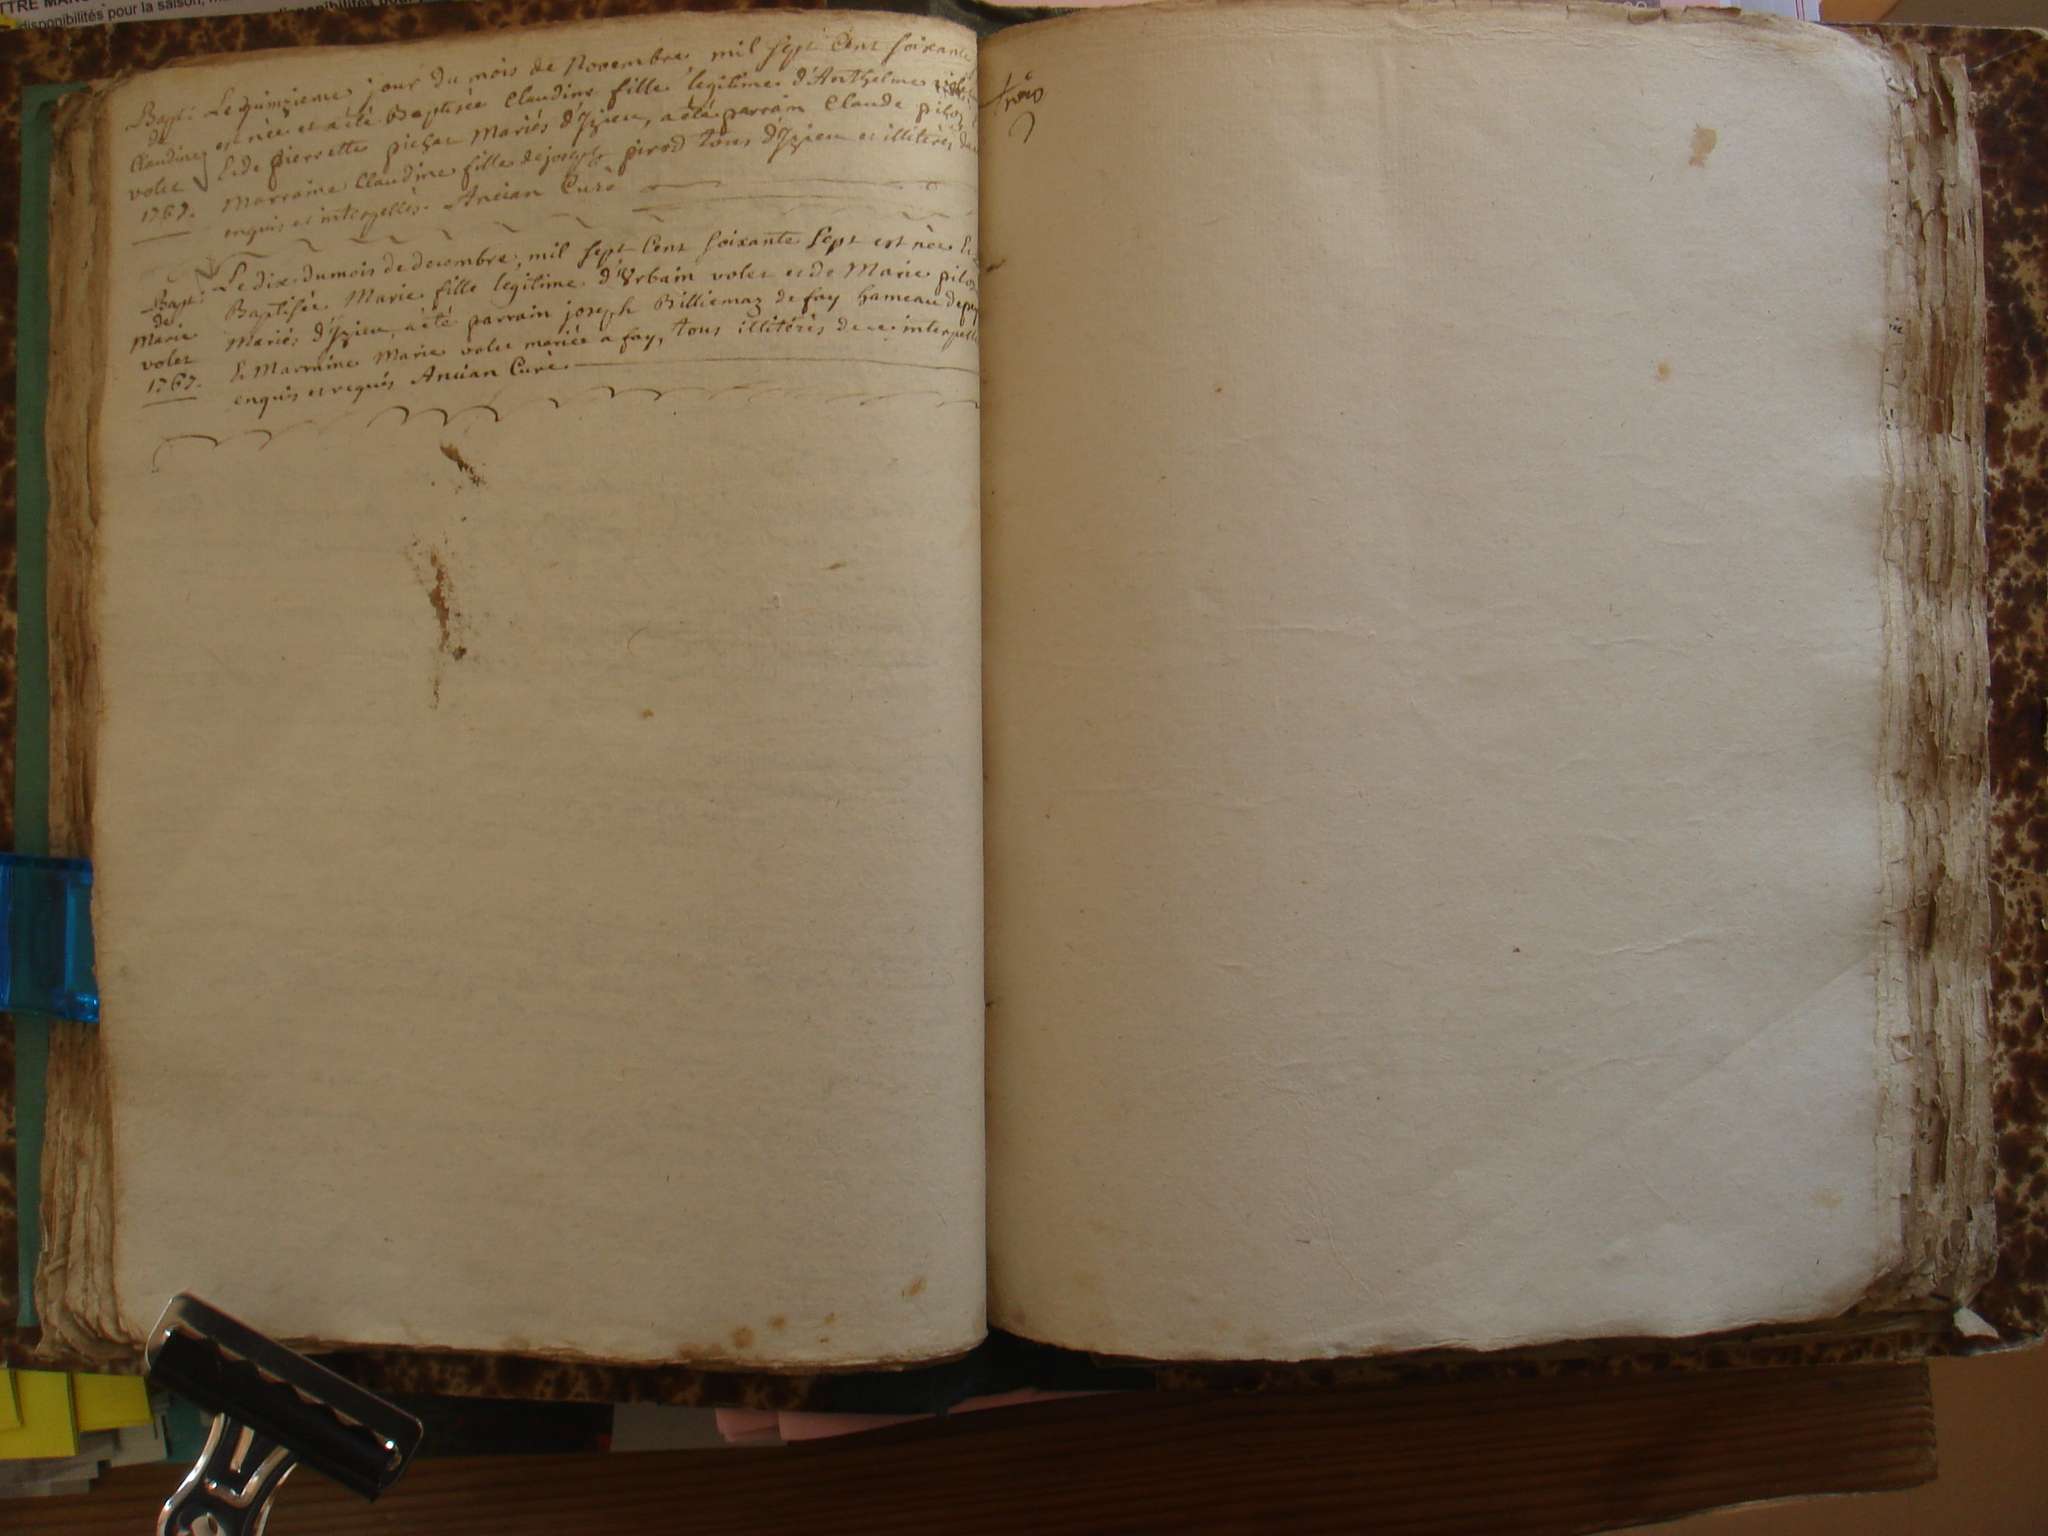 disponibilités pour la saison,
Bapt: Le quinzieme jour du mois de Novembre mil sept Cent soixante
de est née et a été Baptisée Claudine fille legitime d'Anthelme
Claudine & de pierrette pichat Mariés d'Izieu, a été parrain Claude
volet Marraine Claudine fille de joseph pirod tous d'Izieu et illiterés
1767. enquis et interpellés. Ancian Curé
Bapt: Le dix du mois de decembre, mil sept Cent soixante sept est née &
de Baptisée Marie fille legitime d'Urbain volet et de Marie
Marie Mariés d'Izieu, a été parrain joseph Billiemaz de fay hameau
volet & Marraine Marie volet mariée a fay, tous illitérés de ce
1767. enquis et requis Ancian Curé